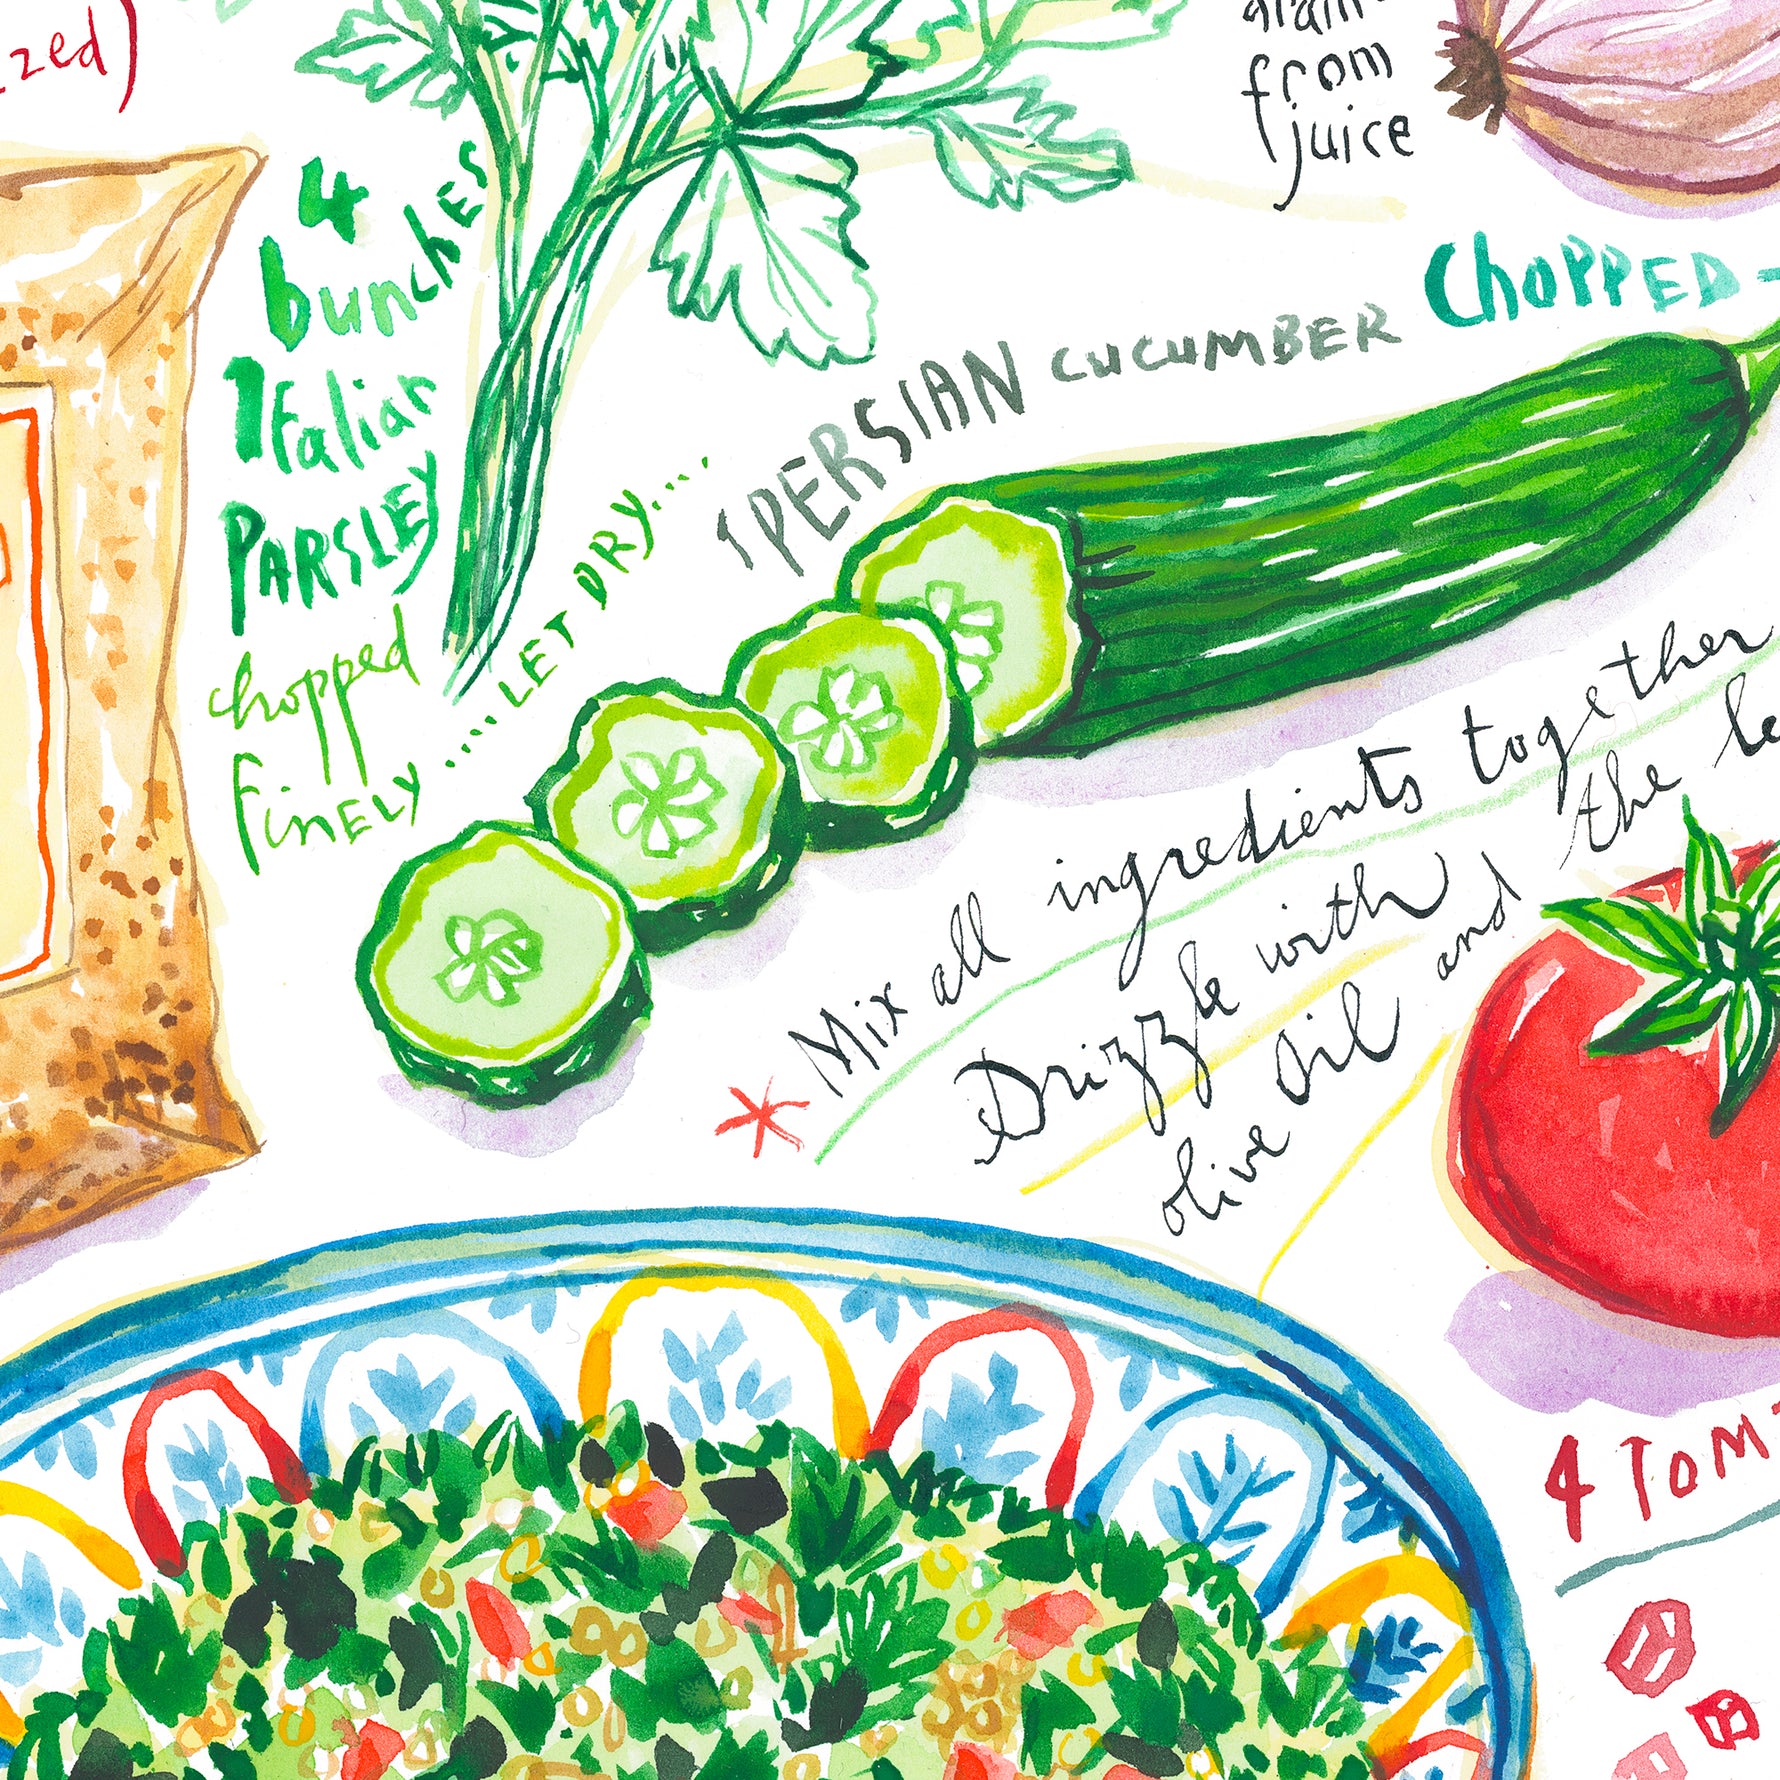 from
juice
4
bunches
Italian
PARSLEY
chopped
FINELY
....LET DRY....
1 PERSIAN CUCUMBER CHOPPED-
Mix all ingredients together
Drizzle with the
olive oil and
4